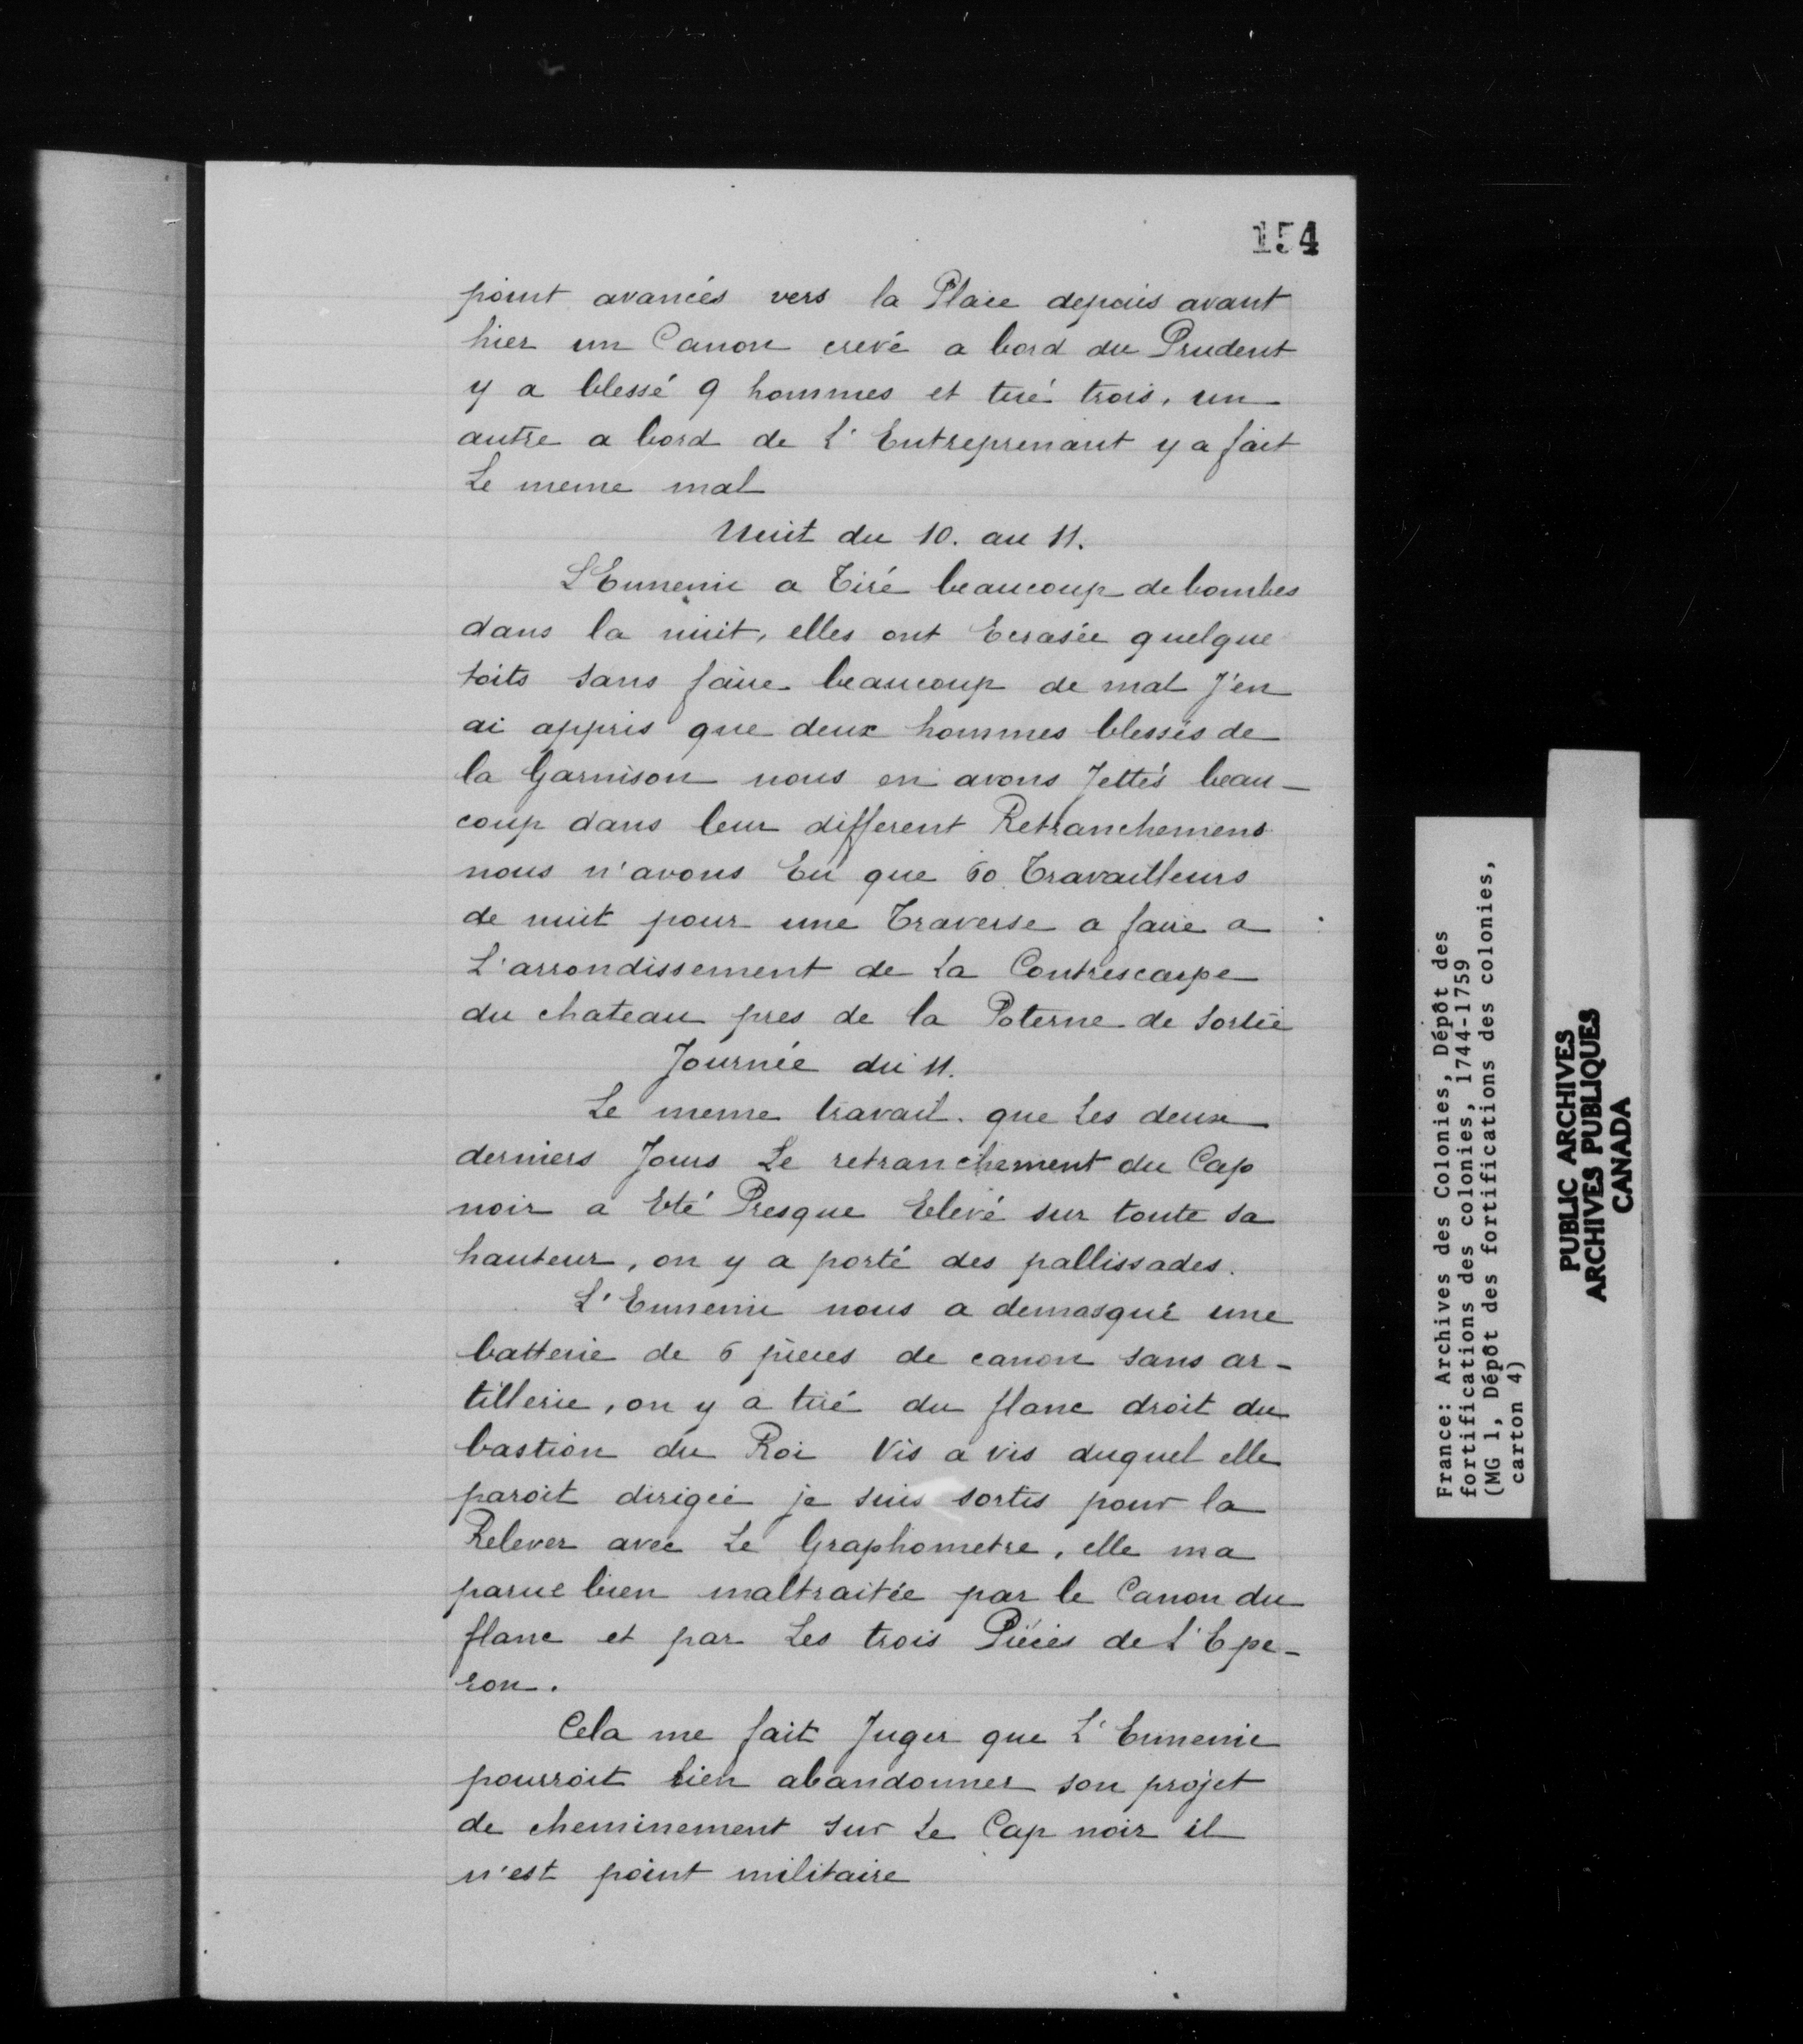 154
point avancés vers la Place depuis avant
hier un Canon crevé a bord du Prudent
y a blessé 9 hommes et tué trois, un
autre a bord de L'Entreprenant y a fait
Le meme mal
Nuit du 10. au 11.
L'Ennemie a Tiré beaucoup de bombes
dans la nuit, elles ont Ecrasée quelque
toits sans faire beaucoup de mal J'en
ai appris que deux hommes blessés de
la Garnison nous en avons Jettés beau-
coup dans leur different Retranchemens
nous n'avons Eu que 60 Travailleurs
de nuit pour une Traverse a faire a
L'arrondissement de La Contrescarpe
du chateau pres de la Poterne de sortie
Journée du 11.
Le meme travail que Les deux
derniers Jours Le retranchement du Cap
noir a Eté Presque Elevé sur toute sa
hauteur, on y a porté des pallissades.
L'Ennemie nous a demasqué une
batterie de 6 pièces de canon sans ar-
tillerie, on y a tiré du flanc droit du
bastion du Roi Vis a vis duquel elle
paroit dirigée je suis sortis pour la
Relever avec Le Graphometre, elle ma
parue bien maltraitée par le Canon du
flanc et par Les trois Piéces de L'Epe-
ron.
Cela me fait Juger que L'Ennemie
pourroit bien abandonner son projet
de cheminement sur Le Cap noir il
n'est point militaire
France: Archives des Colonies, Dépôt des
fortifications des colonies, 1744-1759
(MG 1, Dépôt des fortifications des colonies,
carton 4)
PUBLIC ARCHIVES
ARCHIVES PUBLIQUES
CANADA